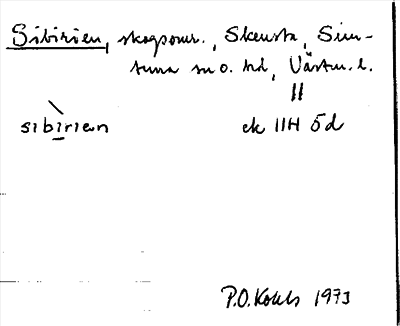 Sibirien, skogsomr., Skensta, Sim-
tuna sn o. hd, Västm. l.
sibirien ek 11H 5d
P.O. Kohls 1973